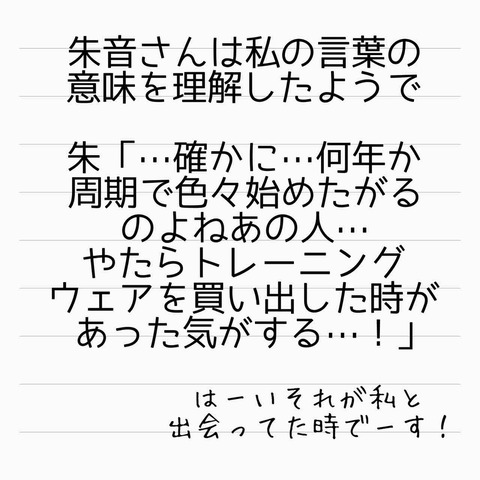 朱音さんは私の言葉の
意味を理解したようで
朱「…確かに…何年か
周期で色々始めたがる
のよねあの人…
やたらトレーニング
ウェアを買い出した時が
あった気がする…！」
はーいそれが私と
出会ってた時でーす！